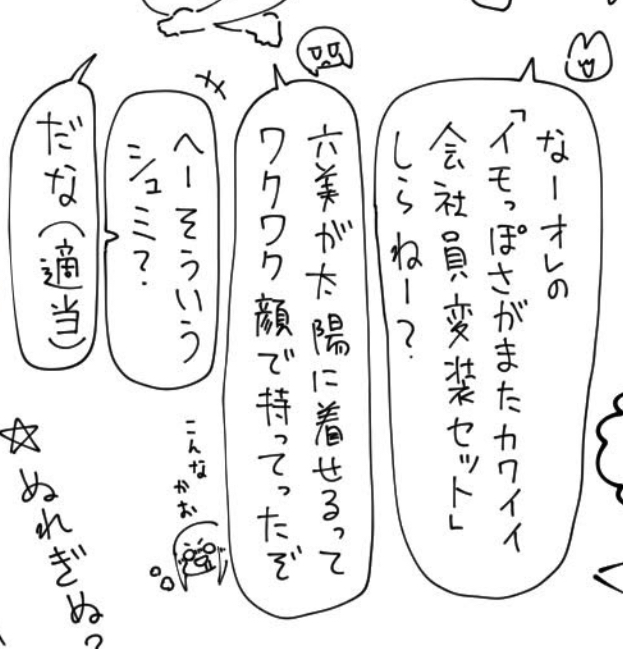 なーオレの
「イモっぽさがまたカワイイ
会社員変装セット」
しらねー？
六美が太陽に着せるって
ワクワク顔で持ってったぞ
へーそういう
シュミ？
だな(適当)
こんな
かお
☆ぬれぎぬ？